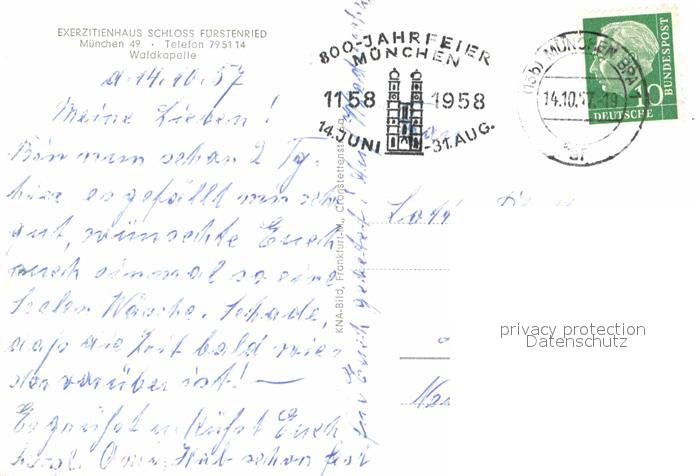 EXERZITIENHAUS SCHLOSS FÜRSTENRIED
München 49 · Telefon 79 51 14
Waldkapelle
d. 14.10.57
Meine Lieben!
Bin nun schon 2 Tg.
hier es gefällt mir sehr
gut, wünschte Euch
auch einmal so eine
Woche. Schade,
daß die Zeit bald wie-
der vorüber ist! —
Es grüßt u. küßt Euch
herzl. Omi. Hab schon fest
für Euch gebetet.
KNA-Bild, Frankfurt-M., Cronstettenstr.
800-JAHRFEIER
MÜNCHEN
1158 1958
14. JUNI - 31. AUG.
(13b) MÜNCHEN BPA
14.10.57.-19
DEUTSCHE
BUNDESPOST
10
privacy protection
Datenschutz